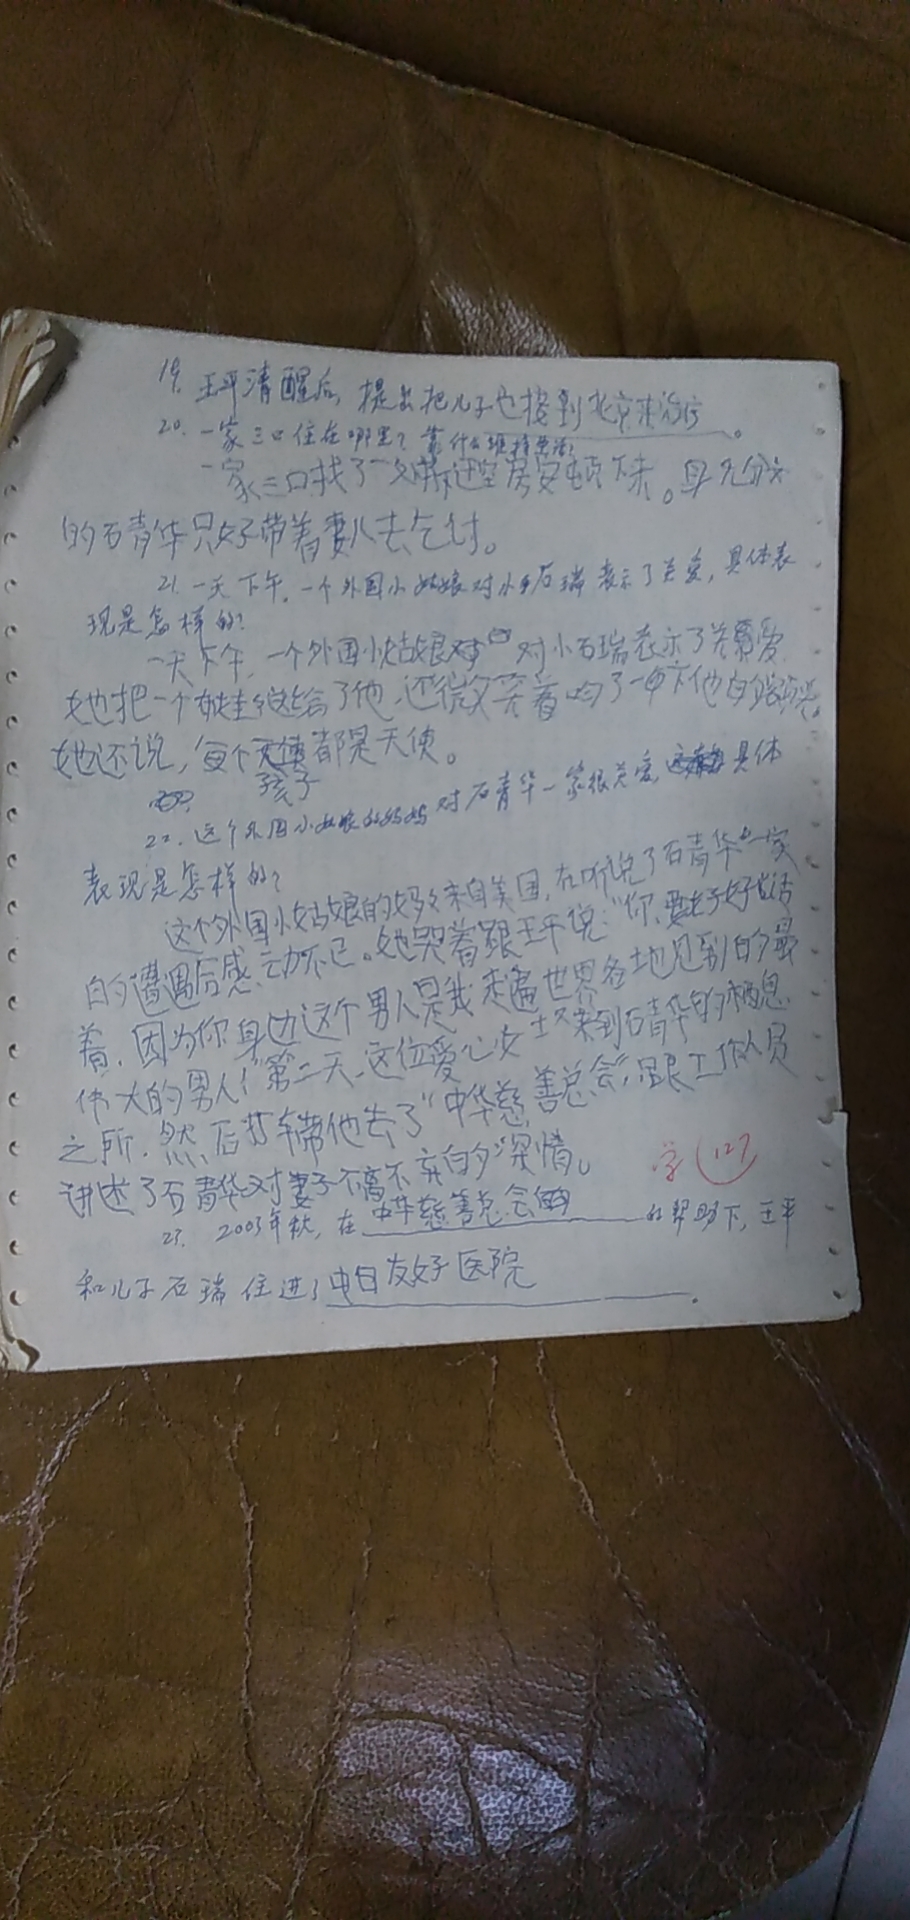 19. 王平清醒后，提出把儿子也接到北京来治疗。
20. 一家三口住在哪里？靠什么维持生活？
一家三口找了一处拆迁空房安顿下来。身无分文
的石青华只好带着妻儿去乞讨。
21. 一天下午，一个外国小姑娘对小石瑞表示了关爱，具体表
现是怎样的？
一天下午，一个外国小姑娘对小石瑞表示了关爱
她把一个娃娃送给了他，还微笑着吻了一下他的
她还说，每个孩子都是天使。
22. 这个外国小姑娘的妈妈对石青华一家很关爱，具体
表现是怎样的？
这个外国小姑娘的妈妈来自美国，在听说了石青华一家
的遭遇后感动不已。她哭着跟王平说：“你要好好活
着，因为你身边这个男人是我走遍世界各地见到的最
伟大的男人！”第二天，这位爱心女士又来到石青华的栖息
之所，然后打车带他去了“中华慈善总会”，跟工作人员
讲述了石青华对妻子不离不弃的深情。
学 127
23. 2003年秋，在中华慈善总会的帮助下，王平
和儿子石瑞住进了中日友好医院.